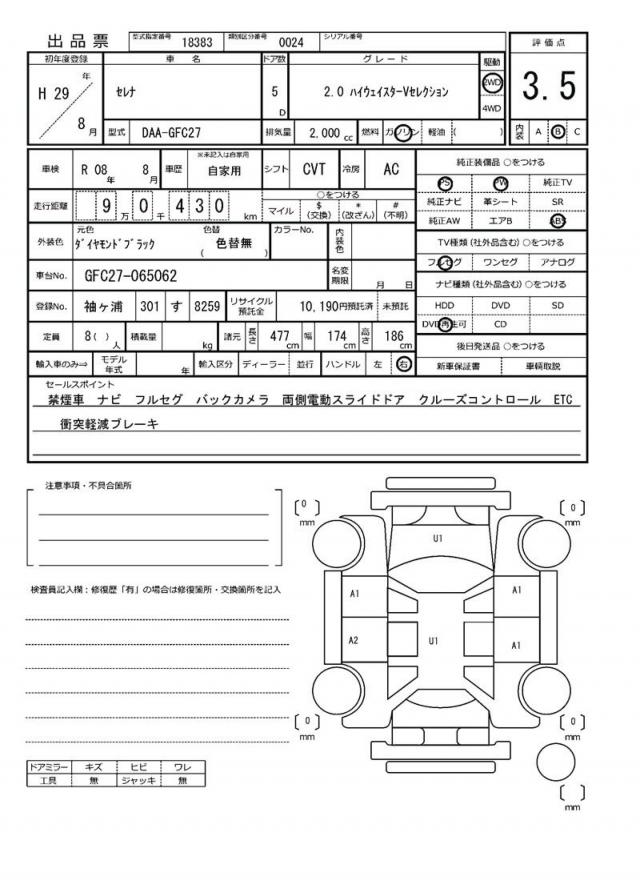 出品票 型式指定番号 18383 類別区分番号 0024 シリアル番号
初年度登録 車名 ドア数 グレード 駆動 評価点
H 29 年 8 月 セレナ 5 D 2.0 ハイウェイスターVセレクション 2WD 4WD 3.5
型式 DAA-GFC27 排気量 2,000 cc 燃料 ガソリン 軽油 ( ) 内装 A B C
車検 R 08 年 8 月 車歴 ※未記入は自家用 自家用 シフト CVT 冷房 AC
走行距離 9 万 0 千 4 3 0 km ○をつける マイル $ (交換) * (改ざん) # (不明)
外装色 元色 ダイヤモンドブラック 色替 ( 色替無 ) カラーNo. 内装色
車台No. GFC27-065062 名変期限 月 日
登録No. 袖ヶ浦 301 す 8259 リサイクル預託金 10,190円預託済 未預託
定員 8( ) 人 積載量 kg 諸元 長さ 477 cm 幅 174 cm 高さ 186 cm
輸入車のみ⇒ モデル年式 年 輸入区分 ディーラー 並行 ハンドル 左 右
純正装備品 ○をつける
PS PW 純正TV
純正ナビ 革シート SR
純正AW エアB ABS
TV種類 (社外品含む) ○をつける
フルセグ ワンセグ アナログ
ナビ種類 (社外品含む) ○をつける
HDD DVD SD
DVD再生可 CD
後日発送品 ○をつける
新車保証書 車輌取説
セールスポイント
禁煙車 ナビ フルセグ バックカメラ 両側電動スライドドア クルーズコントロール ETC
衝突軽減ブレーキ
注意事項・不具合箇所
検査員記入欄：修復歴「有」の場合は修復箇所・交換箇所を記入
〔 0 〕 mm
〔 0 〕 mm
U1
A1
A1
A2
U1
A1
〔 0 〕 mm
〔 0 〕 mm
〔 〕 mm
ドアミラー キズ ヒビ ワレ
工具 無 ジャッキ 無